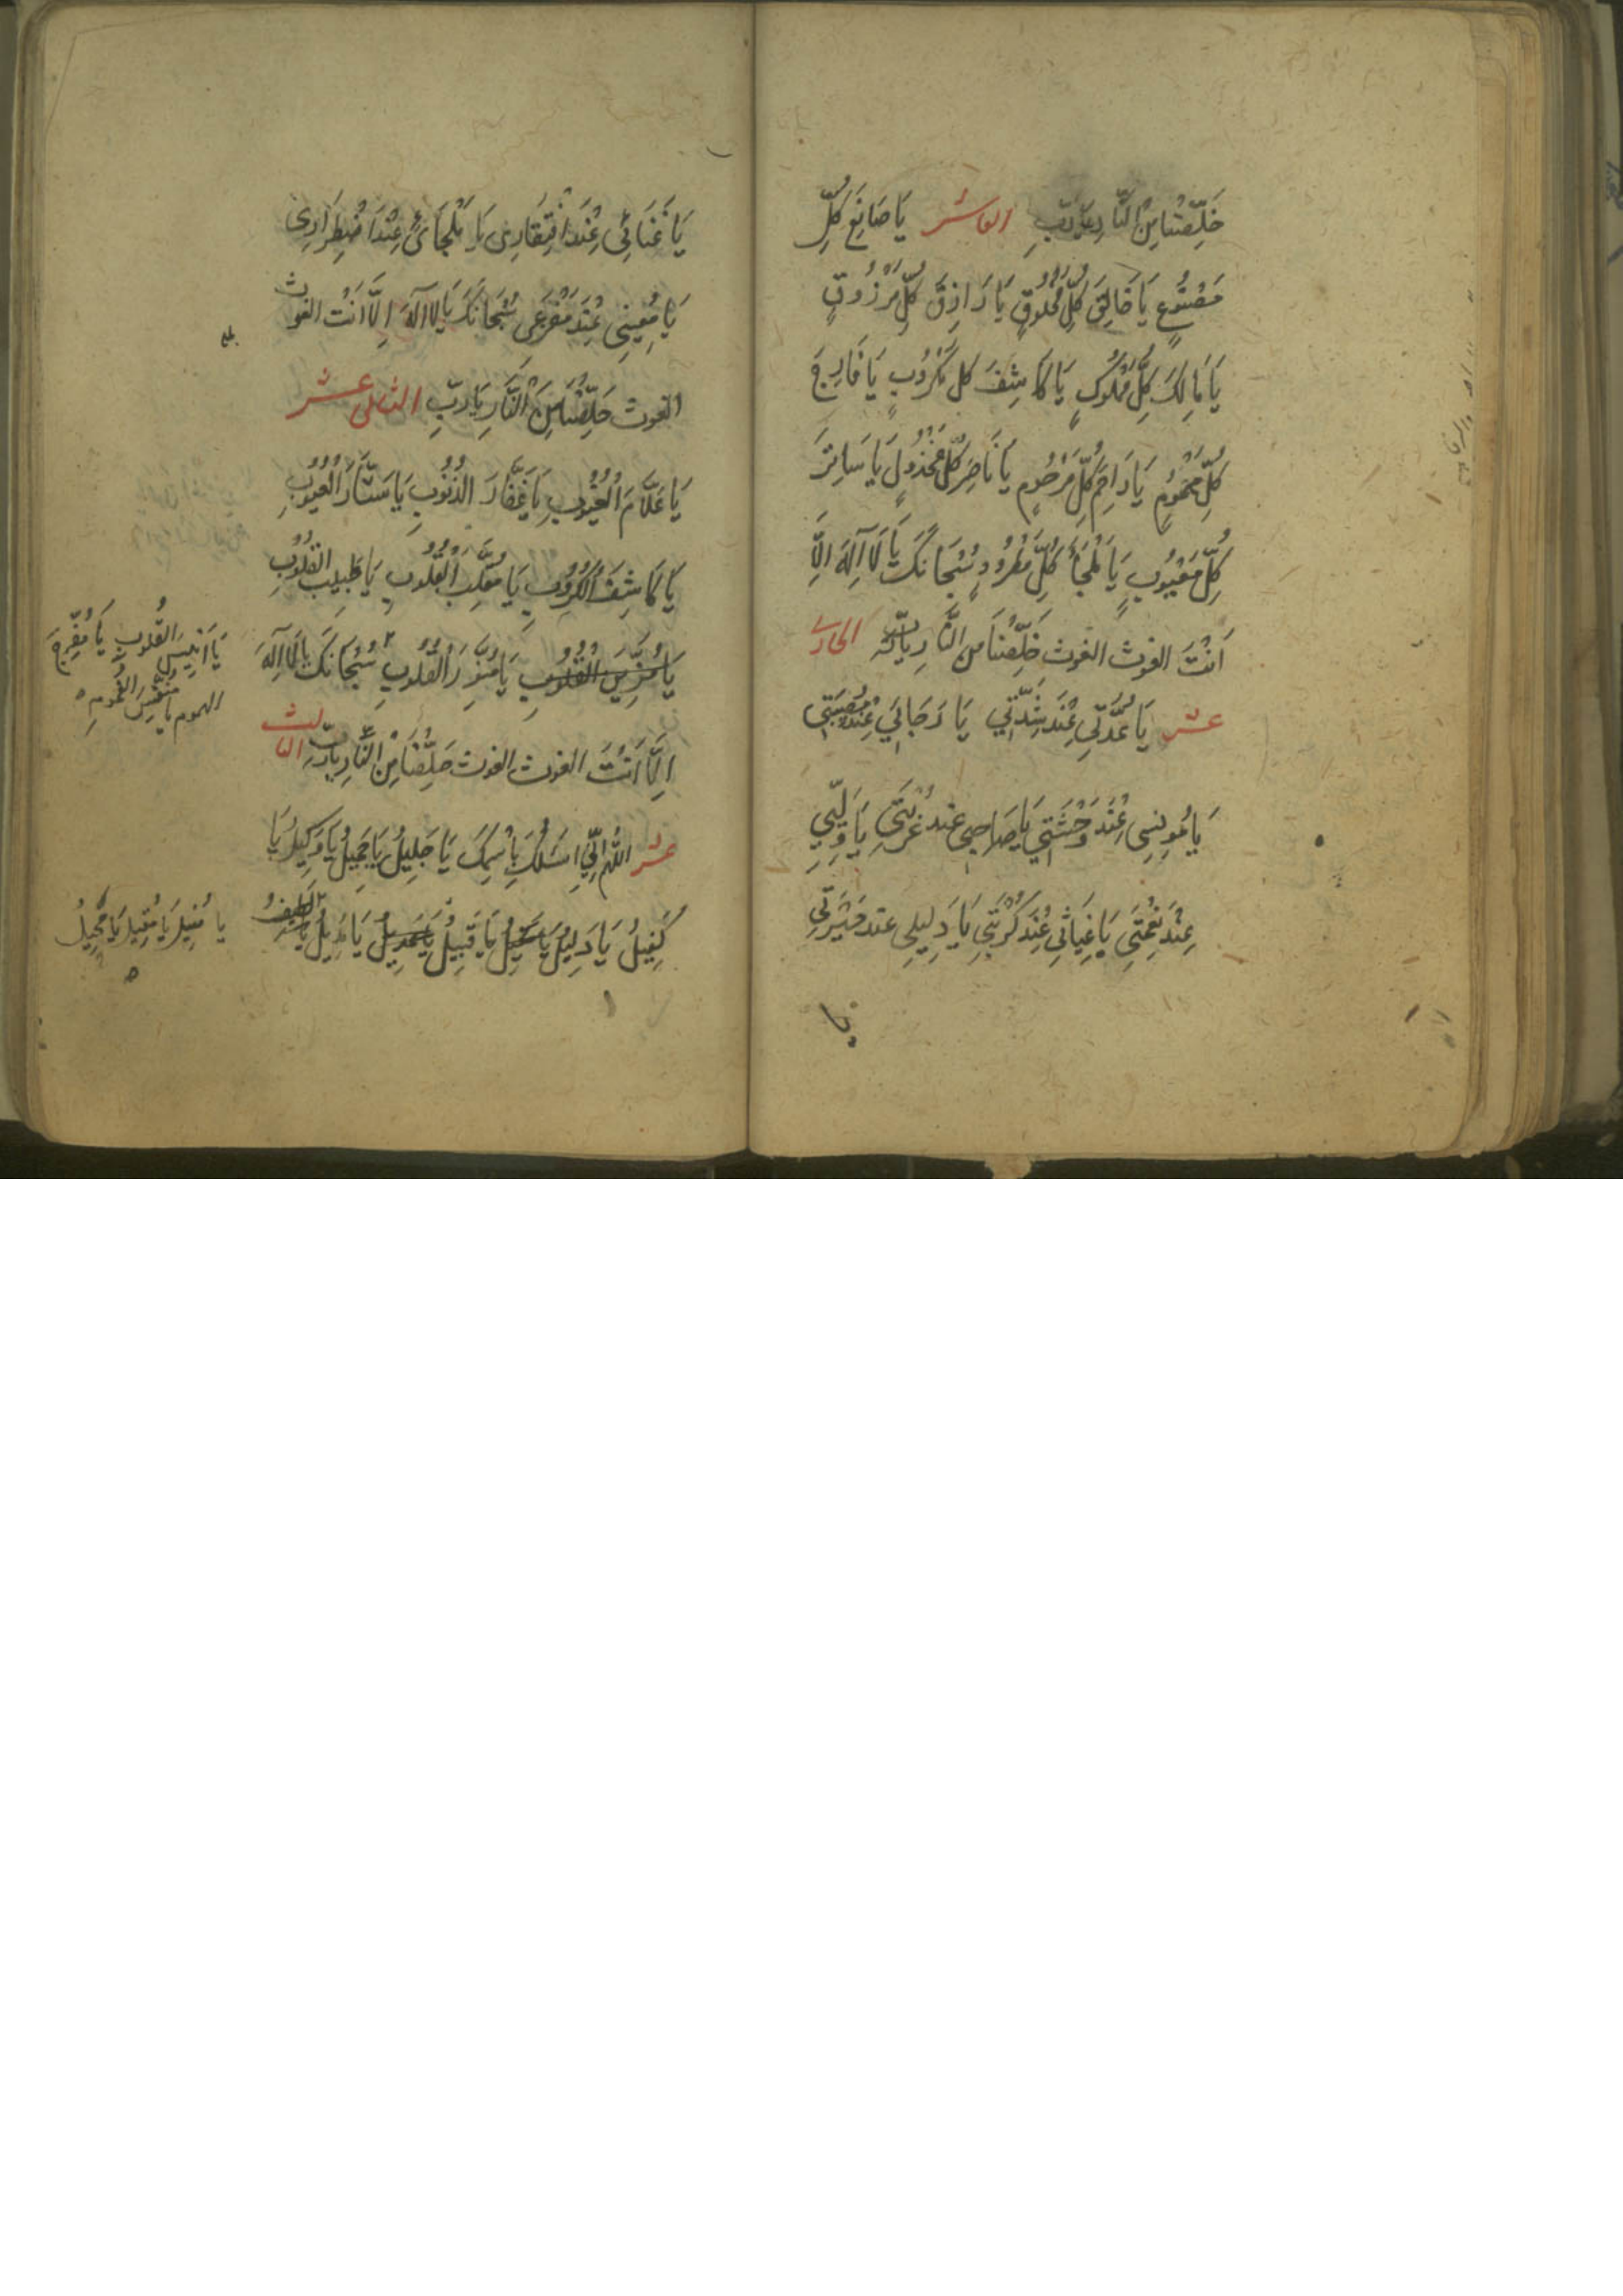 خَلِّصْنَا مِنَ النَّارِ يَا رَبِّ العاشر يَا صَانِعَ كُلِّ
مَصْنُوعٍ يَا خَالِقَ كُلِّ مَخْلُوقٍ يَا رَازِقَ كُلِّ مَرْزُوقٍ
يَا مَالِكَ كُلِّ مَمْلُوكٍ يَا كَاشِفَ كل مَكْرُوبٍ يَا فَارِجَ
كُلِّ مَهْمُومٍ يَا رَاحِمَ كُلِّ مَرْحُومٍ يَا نَاصِرَ كُلِّ مَخْذُولٍ يَا سَاتِرَ
كُلِّ مَعْيُوبٍ يَا مَلْجَأَ كُلِّ مَطْرُودٍ سُبْحَانَكَ يَا لَا آلِهَ اِلَّا
اَنْتَ الغوث الغوث خَلِّصْنَا مِنَ النَّارِ يَا رَبِّ الحادى
عشر يَا عُدَّتِي عِنْدَ شِدَّتِي يَا رَجَائِي عِنْدَ مُصِيبَتِي
يَا مُونِسِى عِنْدَ وَحْشَتِي يَا صَاحِبِى عند غُرْبَتِي يَا وَلِيِّي
عِنْدَ نِعْمَتِي يَا غِيَاثِي عِنْدَ كُرْبَتِي يَا دَلِيلِى عند حَيْرَتِي
يَا غَنَائِي عِنْدَ افْتِقَارِى يَا مَلْجَائِي عِنْدَ اضْطِرَارِى
يَا مُعِينِى عِنْدَ مَفْزَعِى سُبْحَانَكَ يَا لَا اَلهَ اِلَّا اَنْتَ الغوث
الغوث خَلِّصْنَا مِنَ النَّارِ يَا رَبِّ الثانى عشر
يَا عَلَّامَ الْغُيُوبِ يَا غَفَّارَ الذُّنُوبِ يَا سَتَّارَ الْعُيُوبِ
يَا كَاشِفَ الْكُرُوبِ يَا مُقَلِّبَ الْقُلُوبِ يَا طَبِيبَ القُلُوبِ
يَا مُزَيِّنَ القُلُوبِ يَا مُنَوِّرَ الْقُلُوبِ سُبْحَانَكَ يَا لَا اِلهَ
يَا اَنِيسَ القُلُوبِ يَا مُفَرِّجَ
الهموم يَا مُنَفِّسَ الْغُمُومِ
اِلَّا اَنْتَ الغوث الغوث خَلِّصْنَا مِنَ النَّارِ يَا رَبِّ الثالث
عشر اللهم اِنِّي اَسْئَلُكَ بِاسْمِكَ يَا جَلِيلُ يَا جَمِيلُ يَا وَكِيلُ يَا
كَفِيلُ يَا دَلِيلُ يَا قَبِيلُ يَا مُدِيلُ
يا مُنِيلُ يَا مُقِيلُ يَا مُحِيلُ